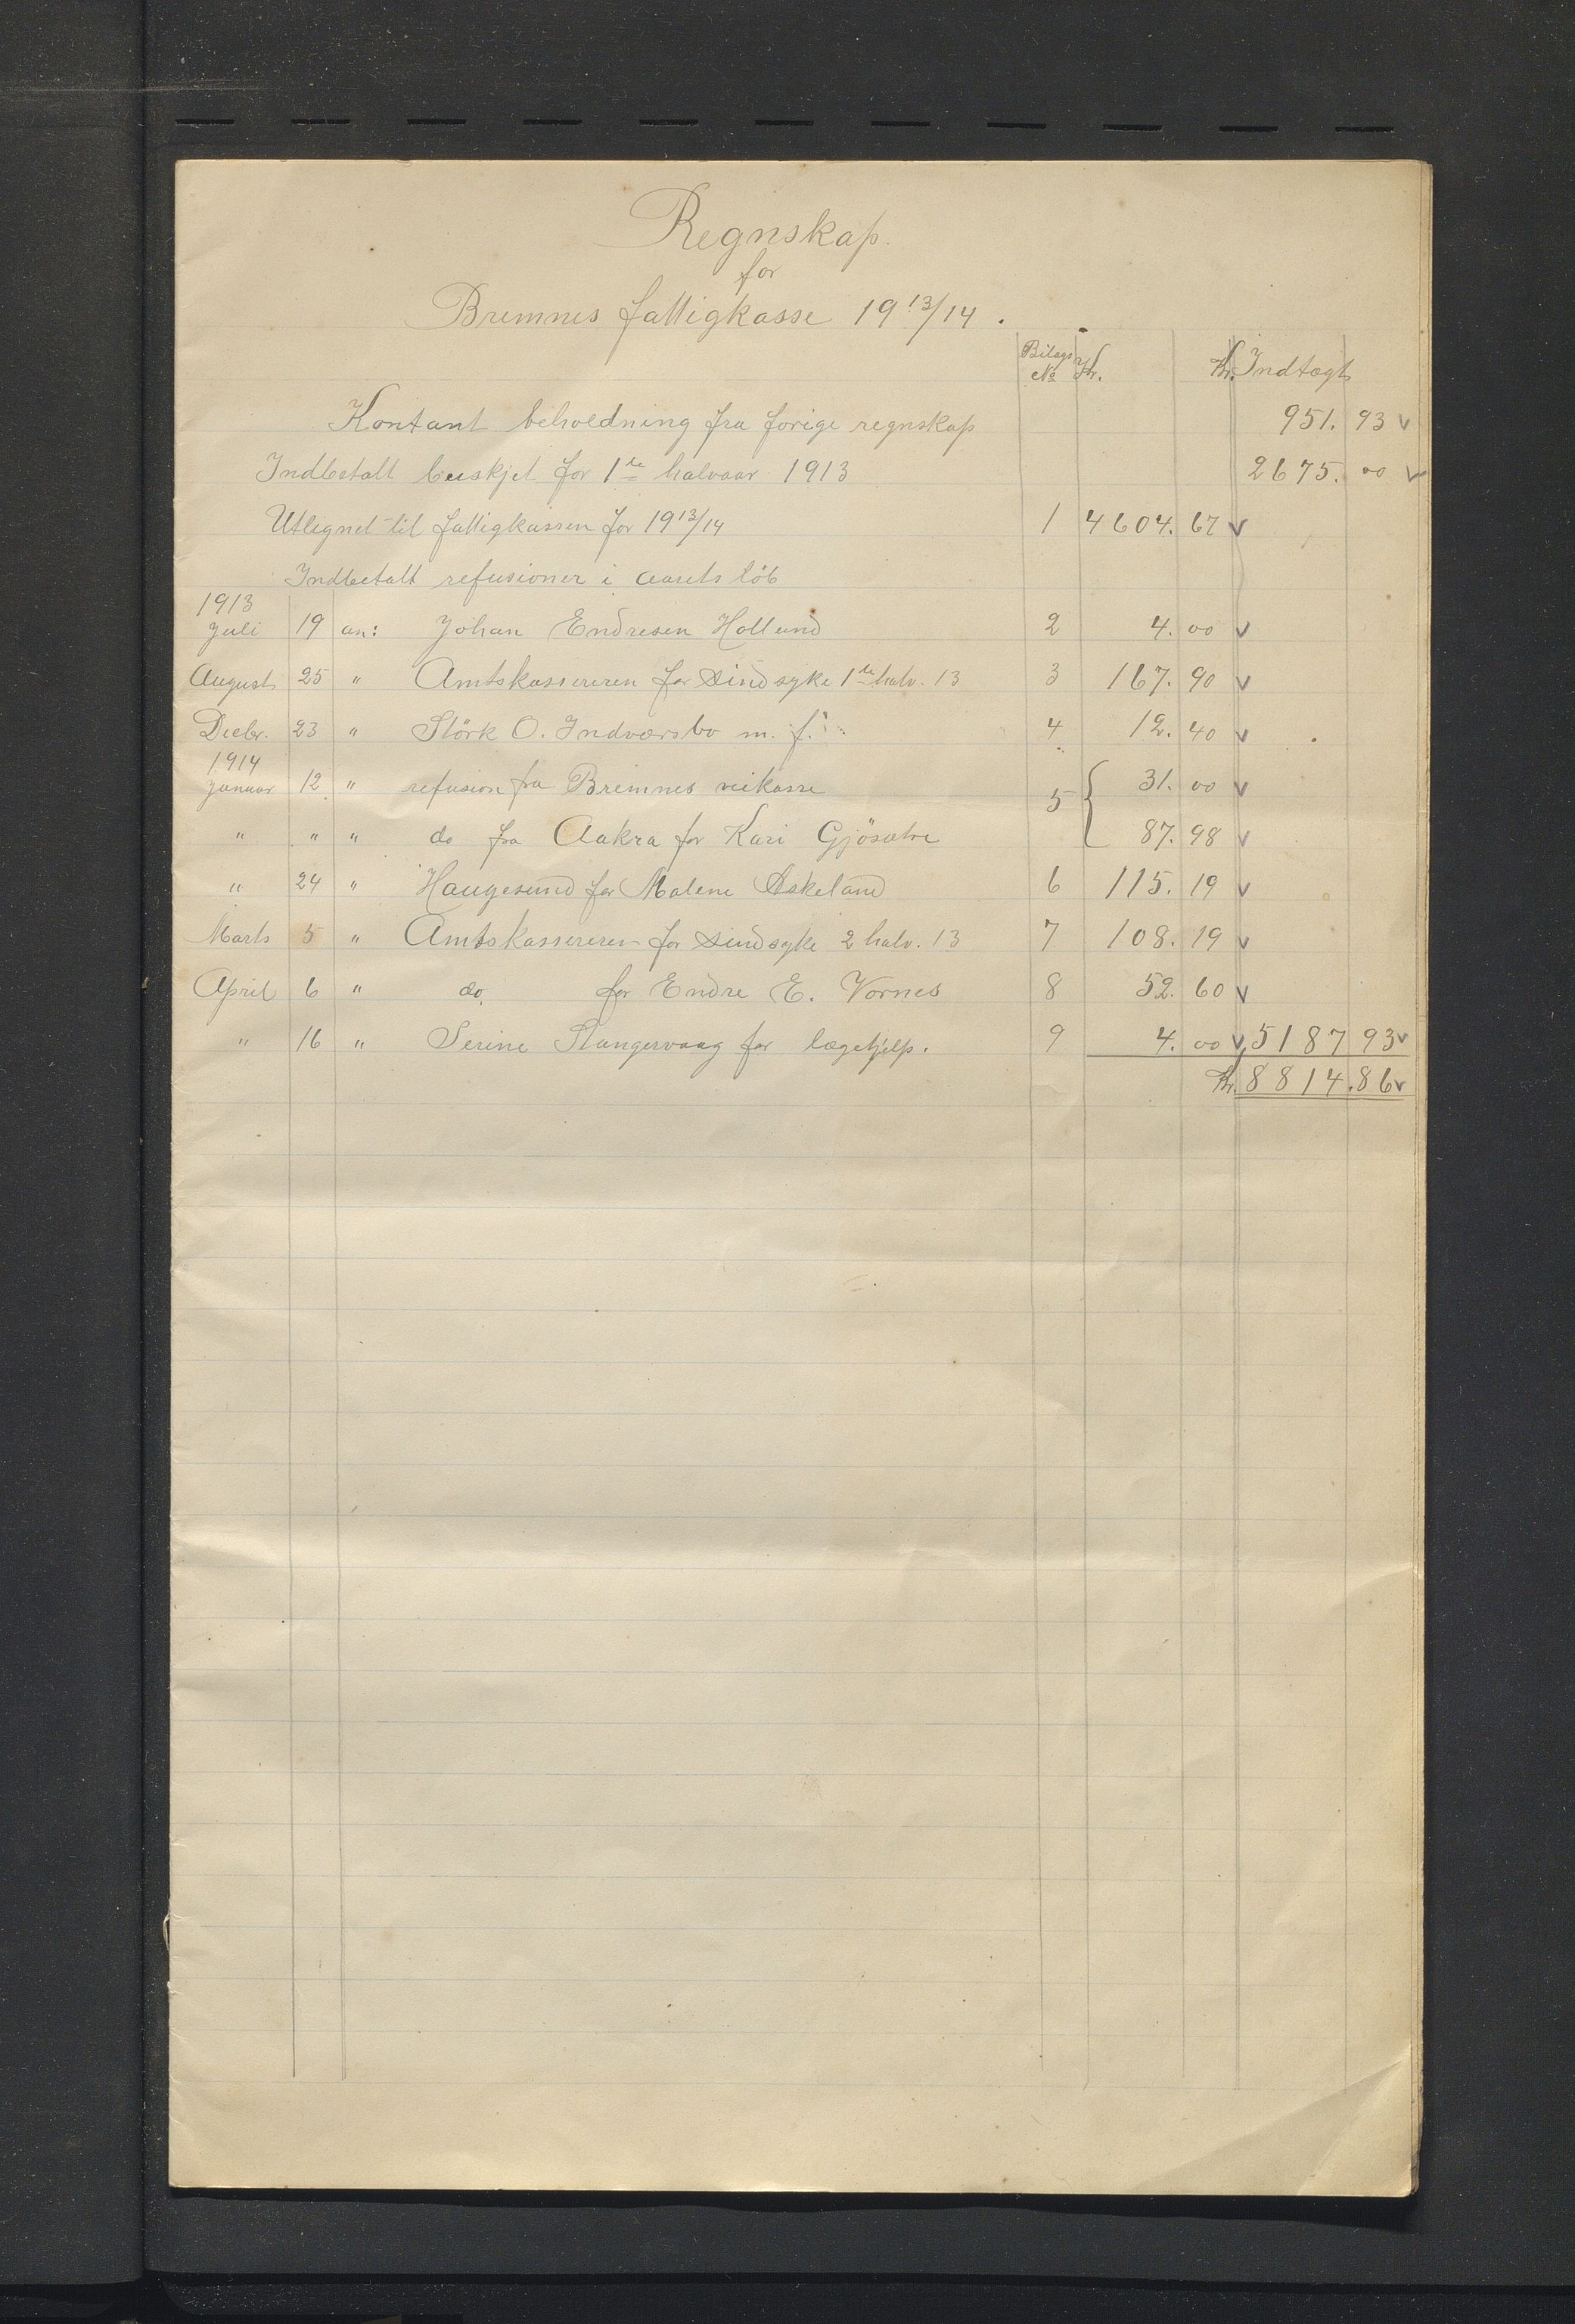 Regnskap.
for
Bremnes fattigkasse 19 13/14.
Bilags No Kr. Kr. Indtægt
Kontant beholdning fra forige regnskap 951. 93 v
Indbetalt for 1te halvaar 1913 2675. 00 v
Utlignet til fattigkassen for 19 13/14 1 4604. 67 v
Indbetalt refusioner i aarets löb
1913
Juli 19 an: Johan Endresen Hollund 2 4. 00 v
August 25 " Amtskassereren for Sindsyke 1te halv. 13 3 167. 90 v
Decbr. 23 " Störk O. m. f. 4 12. 40 v
1914
Januar 12 " refusion fra Bremnes veikasse 5 { 31. 00 v
" " " do fra Aakra for Kari Gjösætre 87. 98 v
" 24 " Haugesund for Malene Askeland 6 115. 19 v
Marts 5 " Amtskassereren for Sindsyke 2 halv. 13 7 108. 19 v
April 6 " do. for Endre E. Vornes 8 52. 60 v
" 16 " Serine Stangervaag for lægehjelp. 9 4. 00 v 5187 93 v
Kr. 8814.86 v